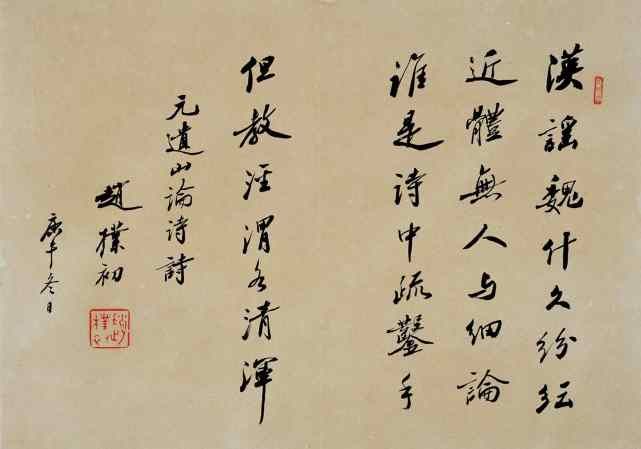 漢謡魏什久紛紜
近體無人与細論
誰是诗中疏鑿手
但教泾渭各清渾
元遺山論诗詩
趙樸初
庚午冬日